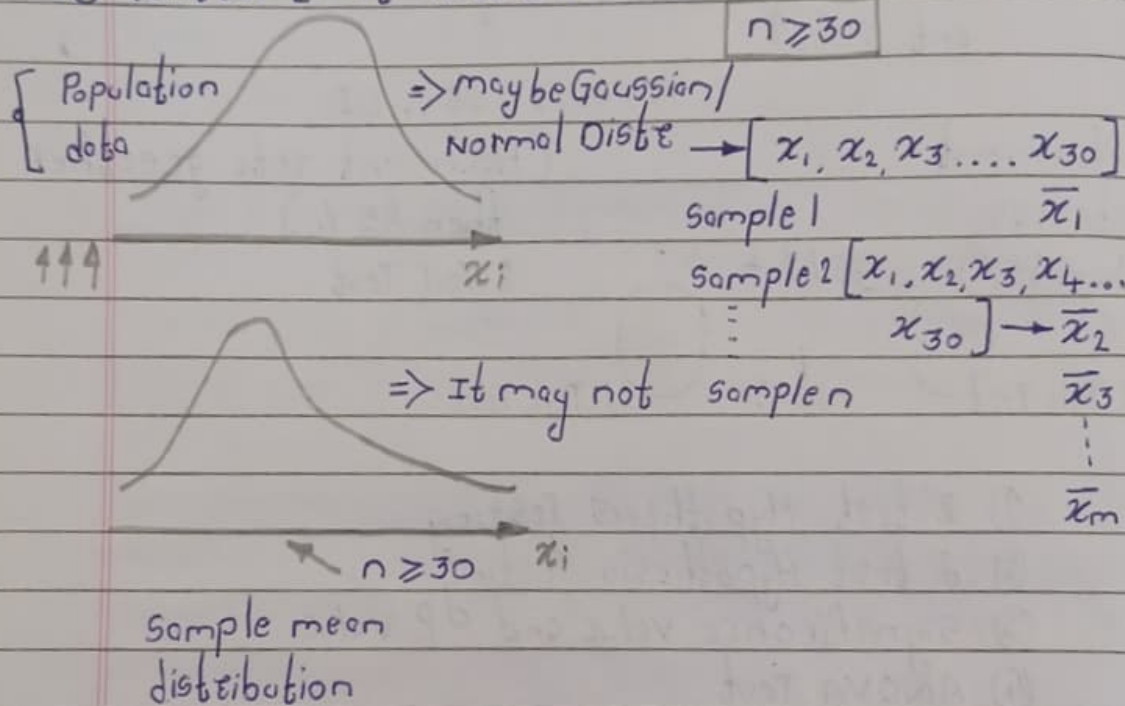 n ≥ 30
Population => maybe Gaussian/
data Normal Distr → [ x₁, x₂, x₃ .... x₃₀ ]
sample 1 x̄₁
xᵢ sample 2 [ x₁, x₂, x₃, x₄...
x₃₀ ] → x̄₂
=> It may not sample n x̄₃
x̄ₘ
xᵢ
n ≥ 30
sample mean
distribution